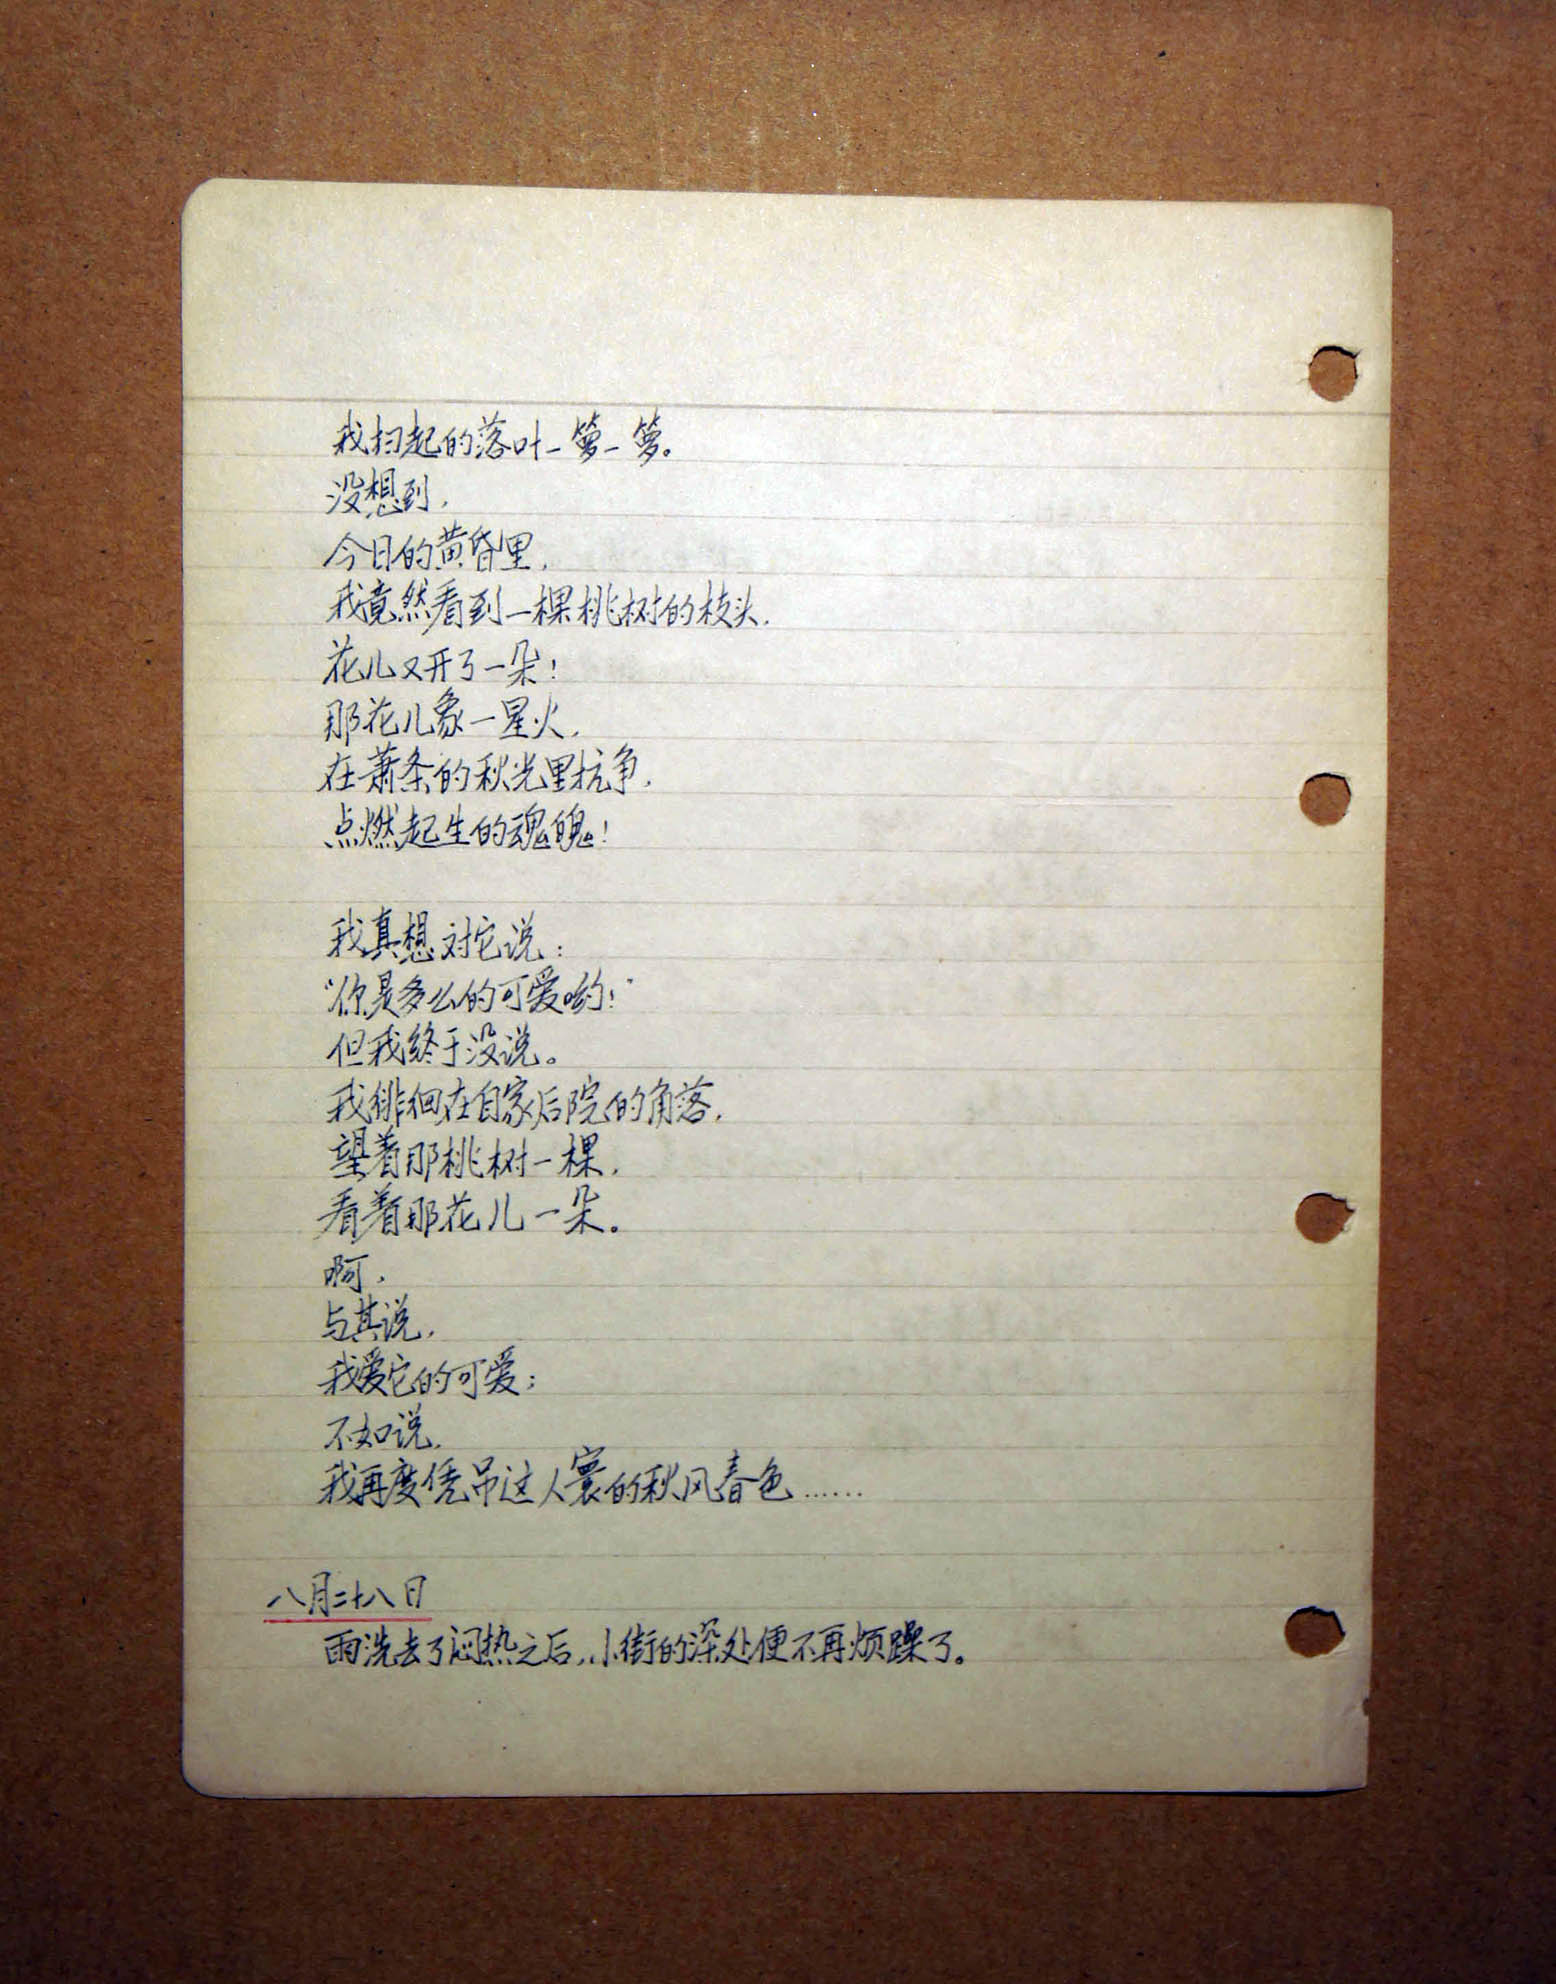 我扫起的落叶一箩一箩。
没想到，
今日的黄昏里，
我竟然看到一棵桃树的枝头，
花儿又开了一朵！
那花儿象一星火，
在萧条的秋光里抗争，
点燃起生的魂魄！
我真想对它说：
“你是多么的可爱哟！”
但我终于没说。
我徘徊在自家后院的角落，
望着那桃树一棵，
看着那花儿一朵。
啊，
与其说，
我爱它的可爱；
不如说，
我再度凭吊这人寰的秋风春色……
八月二十八日
雨洗去了闷热之后，小街的深处便不再烦躁了。